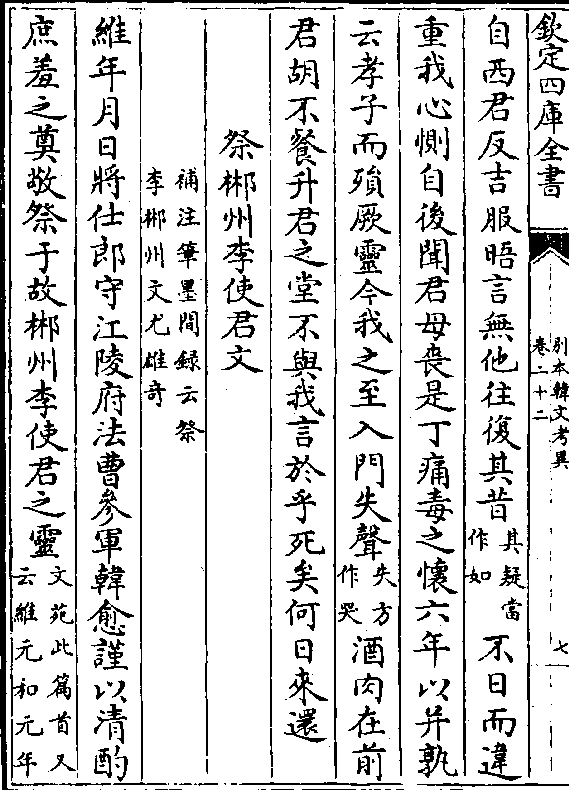 欽定四庫全書
別本韓文考異
卷二十二
七
自西君反吉服晤言無他往復其昔其疑當作如不日而違
重我心惻自後聞君母喪是丁痛毒之懷六年以并孰
云孝子而殞厥靈今我之至入門失聲失方作哭酒肉在前
君胡不餐升君之堂不與我言於乎死矣何日來還
祭郴州李使君文
補注筆墨間録云祭
李郴州文尤雄竒
維年月日將仕郎守江陵府法曹參軍韓愈謹以清酌
庶羞之奠敬祭于故郴州李使君之靈文苑此篇首又云維元和元年